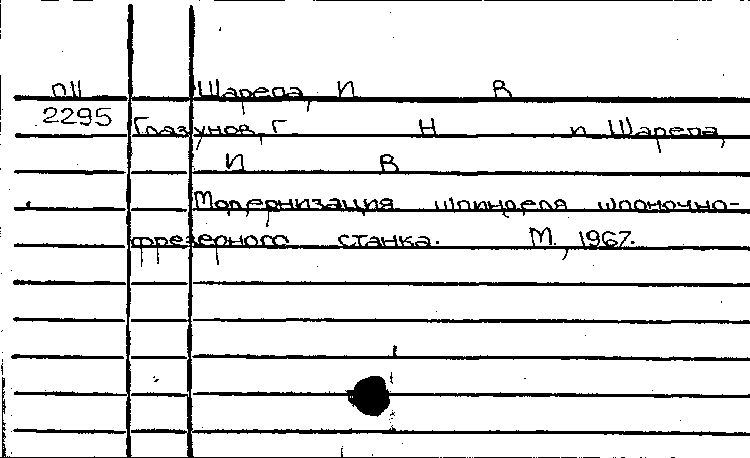 ПІІ Шарепа, И В
2295 Глазунов, Г. Н и Шарепа,
И В
Модернизация шпинделя шпоночно-
фрезерного станка. М., 1967.